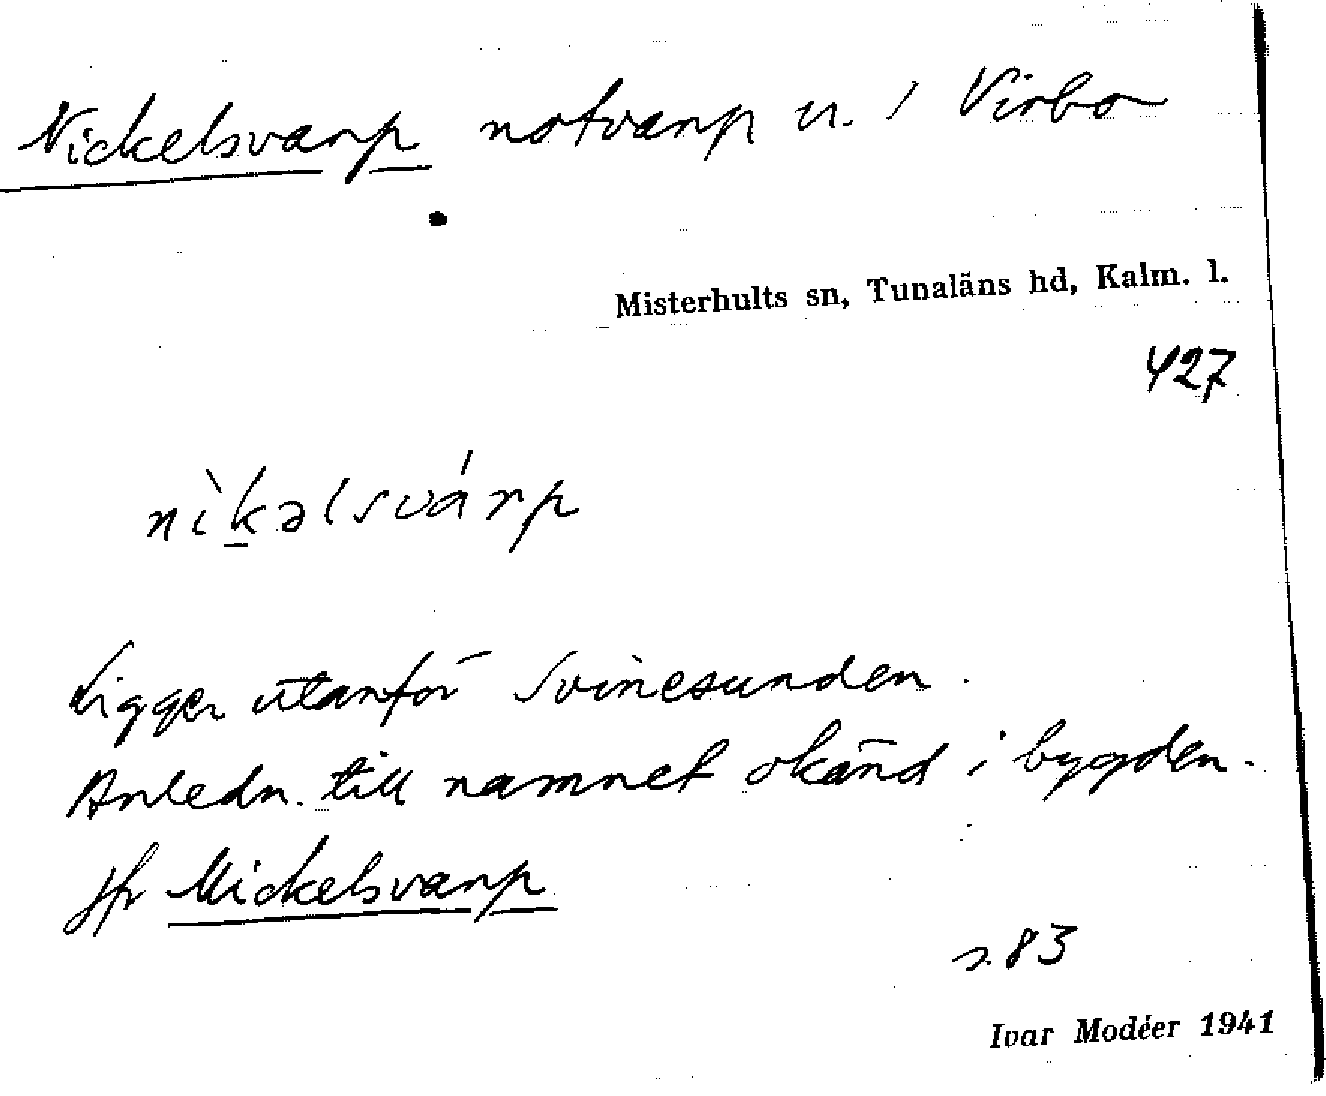 Nickelsvarp notvarp u. / Virbo
Misterhults sn, Tunaläns hd, Kalm. l.
427
nìkəlsvárp
Ligger utanför Svinesunden.
Anledn. till namnet okänd i bygden.
Jfr Mickelsvarp
s. 83
Ivar Modéer 1941